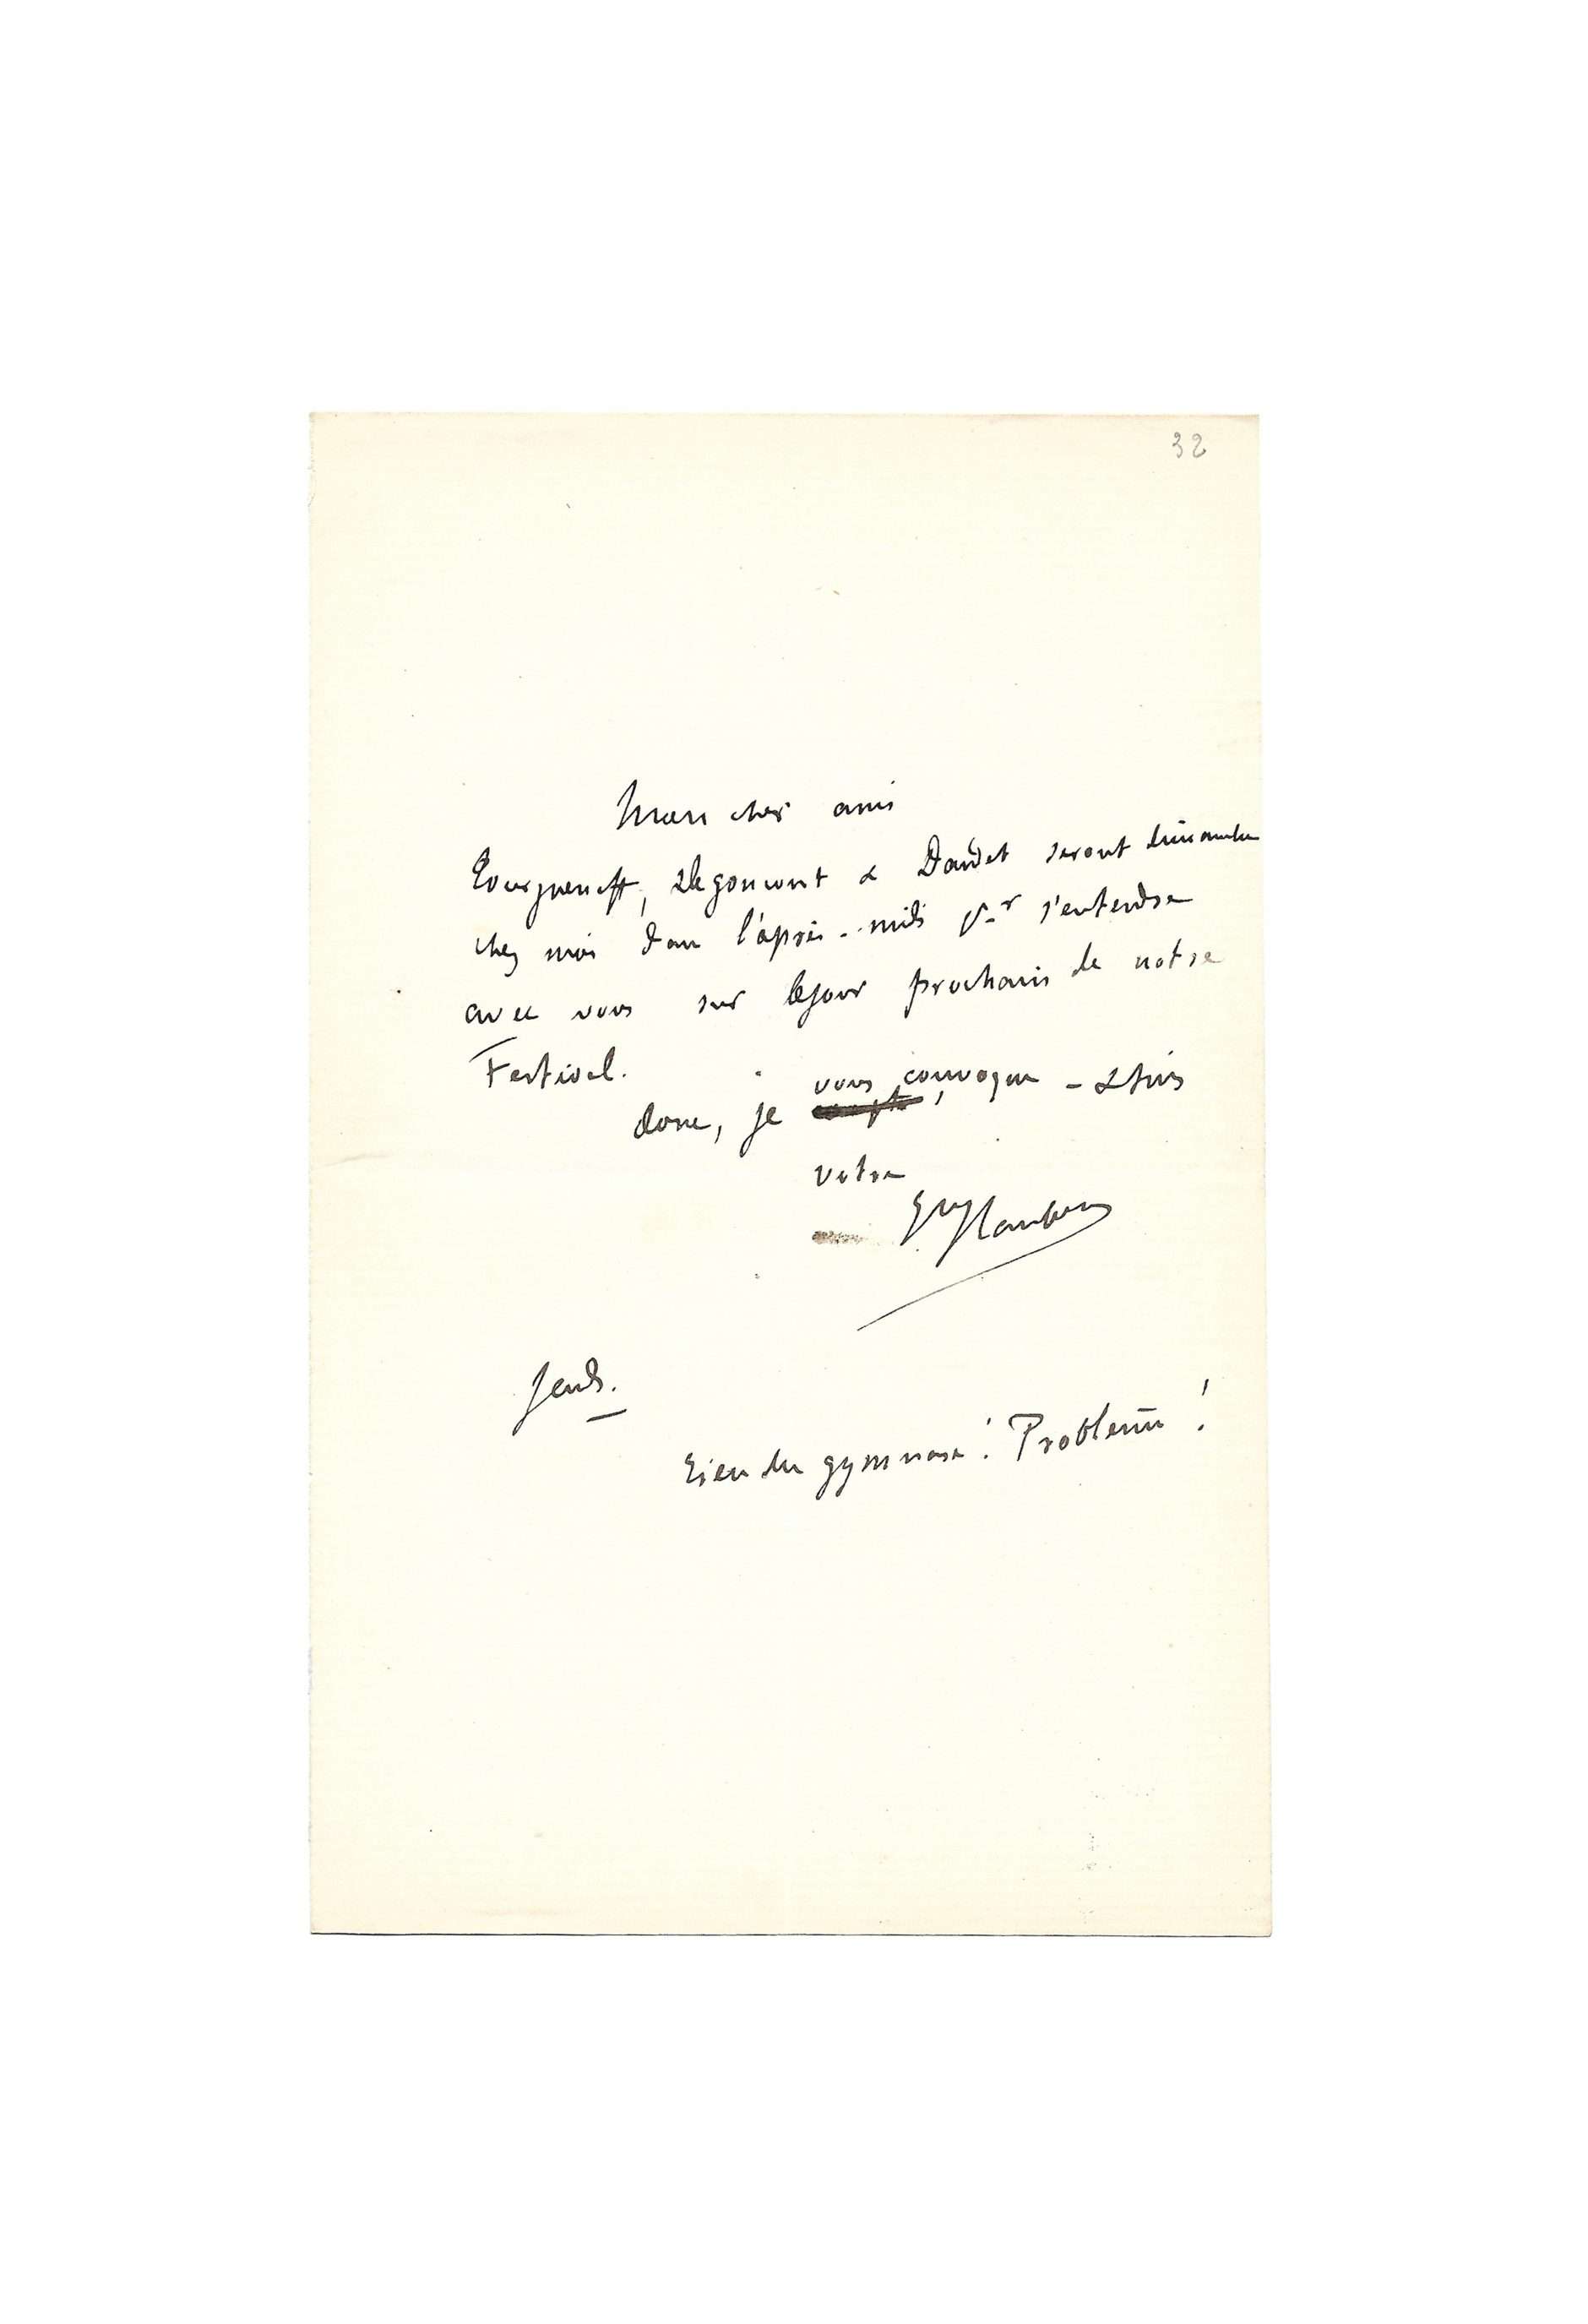 32
Mon cher ami
Tourgueneff, de goncourt & Daudet seront dimanche
chez moi dans l'après-midi pr s'entendre
avec vous sur le jour prochain de notre
Festival.
donc, je vous convoque – & suis
votre
Gve Flaubert
Jeudi.
rien du gymnase! Problème!